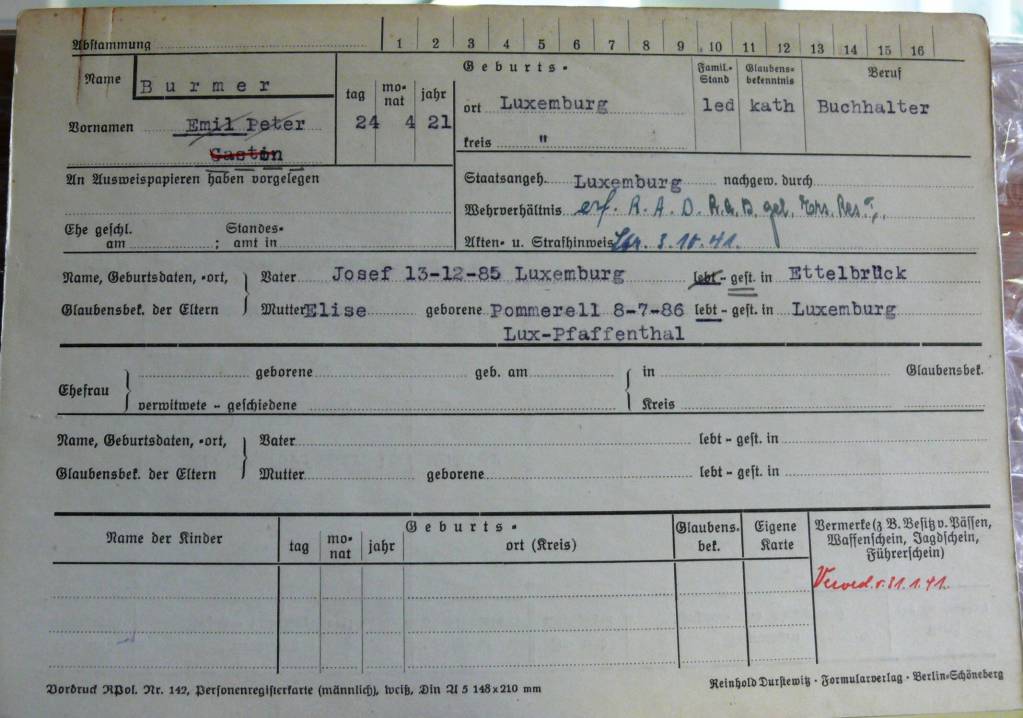 Abstammung 1 2 3 4 5 6 7 8 9 10 11 12 13 14 15 16
Name Burmer
Vornamen Emil Peter
Gaston
tag monat jahr
24 4 21
Geburts-
ort Luxemburg
kreis "
Famil.-Stand
led
Glaubensbekenntnis
kath
Beruf
Buchhalter
An Ausweispapieren haben vorgelegen
Staatsangeh. Luxemburg nachgew. durch
Wehrverhältnis erf. R. A. D. R.A.D. gel. Ers. Res. I,
Ehe geschl. am ; Standesamt in
Akten- u. Strafhinweis Str. 3.10.41.
Name, Geburtsdaten, -ort, Vater Josef 13-12-85 Luxemburg lebt - gest. in Ettelbrück
Glaubensbek. der Eltern Mutter Elise geborene Pommerell 8-7-86 lebt - gest. in Luxemburg
Lux-Pfaffenthal
Ehefrau geborene geb. am in Glaubensbek.
verwitwete - geschiedene Kreis
Name, Geburtsdaten, -ort, Vater lebt - gest. in
Glaubensbek. der Eltern Mutter geborene lebt - gest. in
Name der Kinder
Geburts-
tag monat jahr ort (Kreis)
Glaubens-bek.
Eigene Karte
Vermerke (z B. Besitz v. Pässen,
Waffenschein, Jagdschein,
Führerschein)
v. 31.1.41.
Vordruck RPol. Nr. 142, Personenregisterkarte (männlich), weiß, Din A 5 148x210 mm
Reinhold Durstewitz · Formularverlag · Berlin-Schöneberg